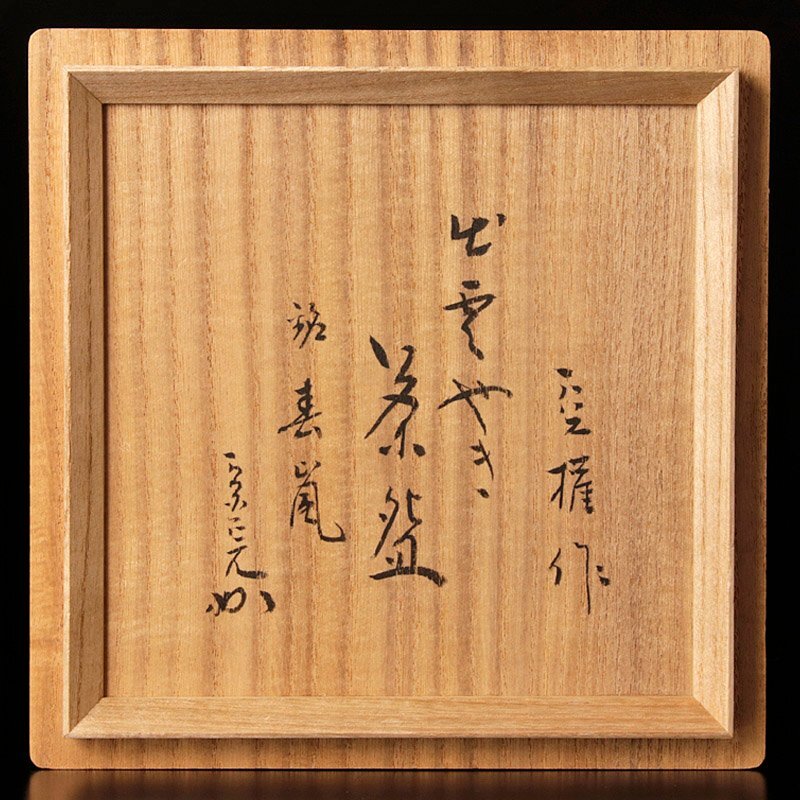 空権作
出雲やき
茶盌
銘 春嵐